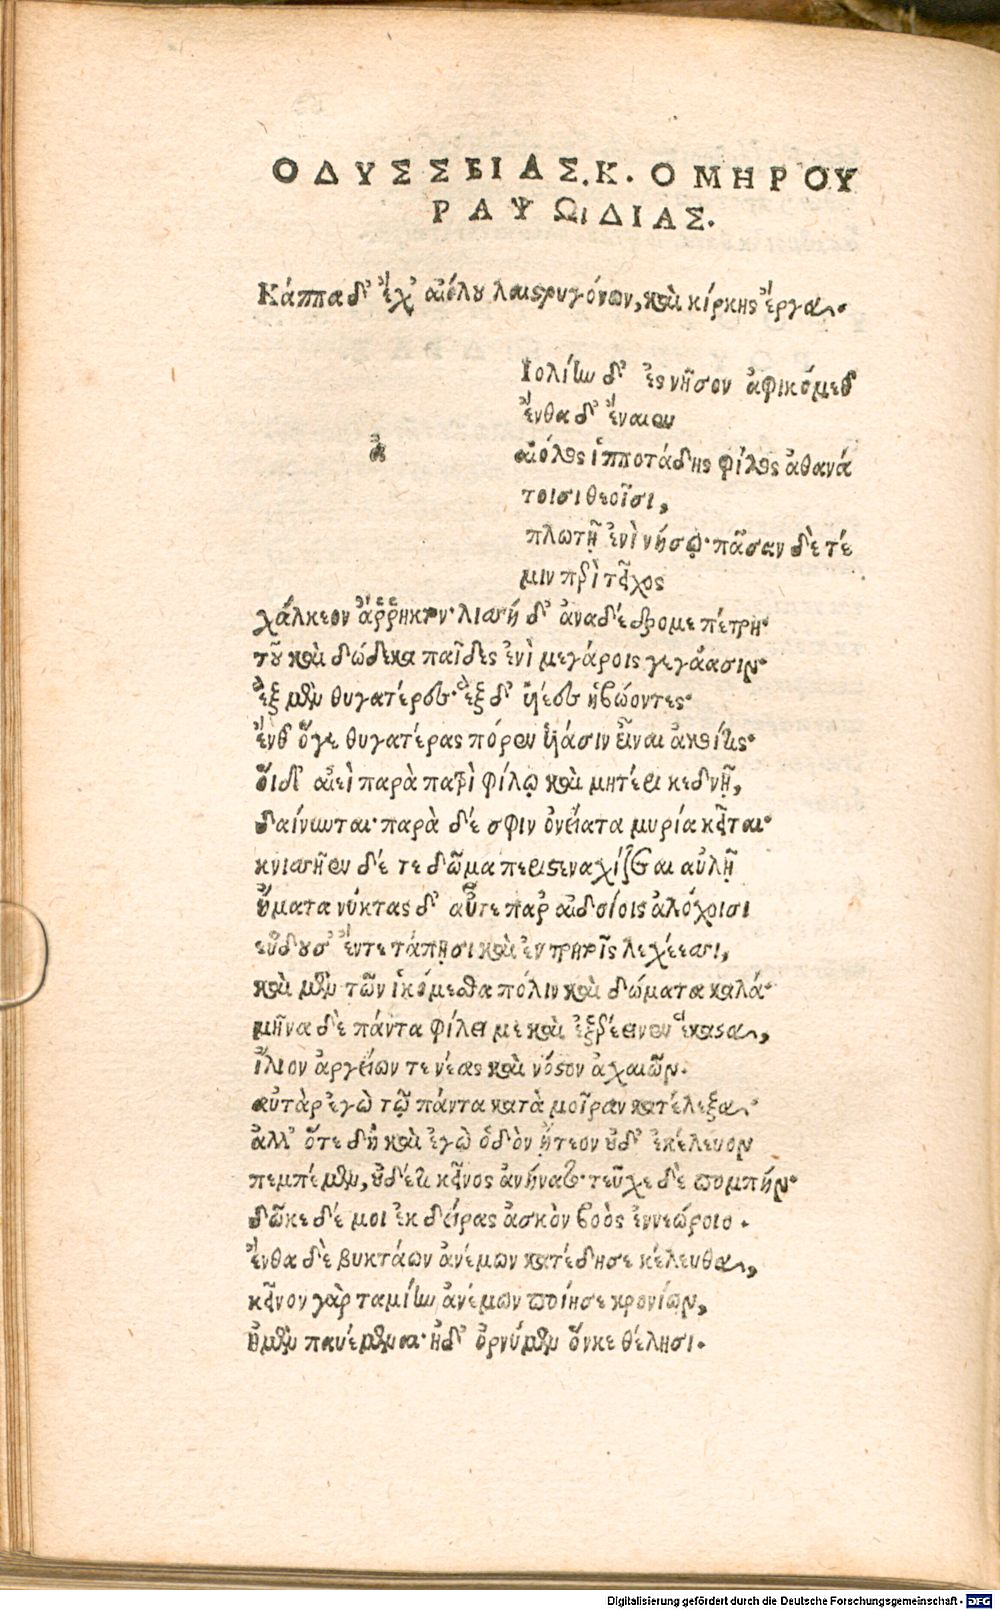 ΟΔΥΣΣΕΙΑΣ.Κ. ΟΜΗΡΟΥ
ΡΑΨΩΙΔΙΑΣ.
Κάππα δ' ἔχ' αἰόλου λαιστρυγόνων, καὶ κίρκης ἔργα.
Ιολίην δ' ἐς νῆσον ἀφικόμεθ
ἔνθα δ' ἔναιεν
α
αἰόλος ἱπποτάδης φίλος ἀθανά
τοισι θεοῖσι,
πλωτῇ ἐνὶ νήσῳ· πᾶσαν δὲ τέ
μιν πέρι τεῖχος
χάλκεον ἄῤῥηκτον· λισσὴ δ' ἀναδέδρομε πέτρη·
τοῦ καὶ δώδεκα παῖδες ἐνὶ μεγάροις γεγάασιν·
ἓξ μὲν θυγατέρες· ἓξ δ' υἱέες ἡβώοντες·
ἔνθ' ὅγε θυγατέρας πόρεν υἱάσιν εἶναι ἀκοίτις·
οἵδ' αἰεὶ παρὰ πατρὶ φίλῳ καὶ μητέρι κεδνῇ,
δαίνυνται· παρὰ δέ σφιν ὀνείατα μυρία κεῖται·
κνισσῆεν δέ τε δῶμα περιστεναχίζεται αὐλῇ
ἤματα νύκτας δ' αὖτε παρ αἰδοίοις ἀλόχοισι
εὕδουσ' ἔντε τάπησι καὶ ἐν τρητοῖς λεχέεσσι,
καὶ μὲν τῶν ἱκόμεσθα πόλιν καὶ δώματα καλά·
μῆνα δὲ πάντα φίλει με καὶ ἐξερέεινεν ἕκαστα,
ἴλιον ἀργείων τε νέας καὶ νόστον ἀχαιῶν.
αὐτὰρ ἐγὼ τῷ πάντα κατὰ μοῖραν κατέλεξα·
ἀλλ' ὅτε δὴ καὶ ἐγὼ ὁδὸν ᾔτεον ἠδ' ἐκέλευον
πεμπέμεν, οὐδέτι κεῖνος ἀνήνατο· τεῦχε δὲ πομπήν·
δῶκε δέ μοι ἐκ δείρας ἀσκὸν βοὸς ἐννεώροιο.
ἔνθα δὲ βυκτάων ἀνέμων κατέδησε κέλευθα,
κεῖνον γὰρ ταμίην ἀνέμων ποίησε κρονίων,
ἠμὲν παυέμεναι· ἠδ' ὀρνύμεν ὅνκε θέλησι.
Digitalisierung gefördert durch die Deutsche Forschungsgemeinschaft - DFG